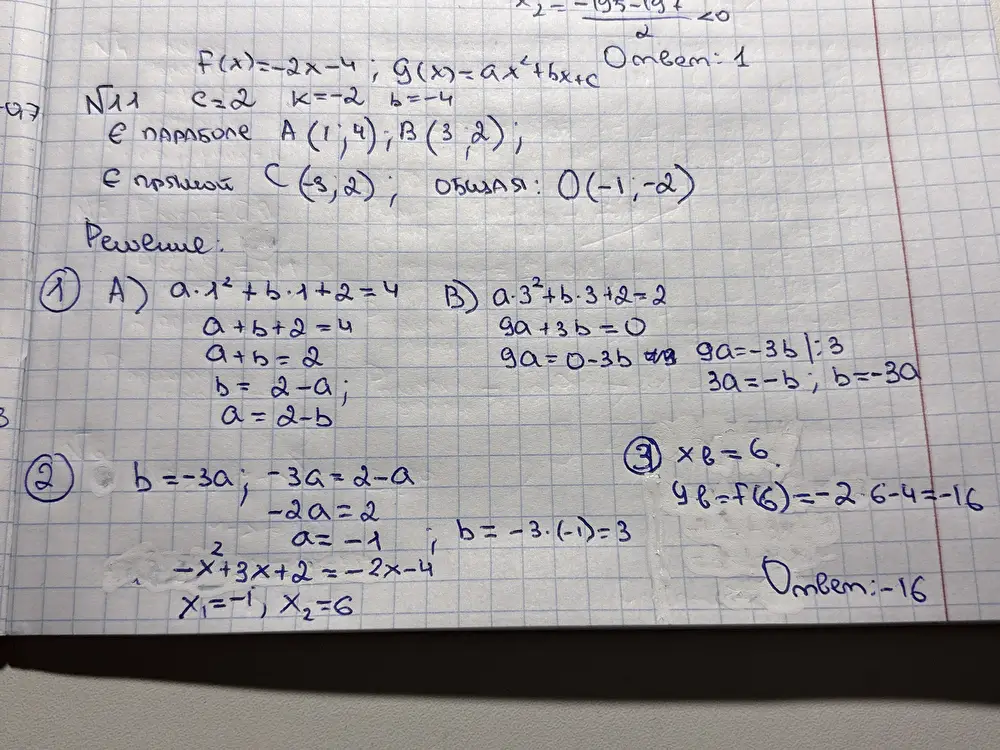 x₂ = (-195-197)/2 < 0
Ответ: 1
F(x)=-2x-4; g(x)=ax²+bx+c
-97
N11 c=2 k=-2 b=-4
∈ параболе A(1;4); B(3;2);
∈ прямой C(-3;2); общая: O(-1;-2)
Решение:
① A) a·1²+b·1+2=4
a+b+2=4
a+b=2
b=2-a;
a=2-b
B) a·3²+b·3+2=2
9a+3b=0
9a=0-3b 9a=-3b |:3
3a=-b; b=-3a
3
② b=-3a; -3a=2-a
-2a=2
a=-1; b=-3·(-1)=3
-x²+3x+2=-2x-4
x₁=-1, x₂=6
③ xв=6.
yв=f(6)=-2·6-4=-16
Ответ:-16